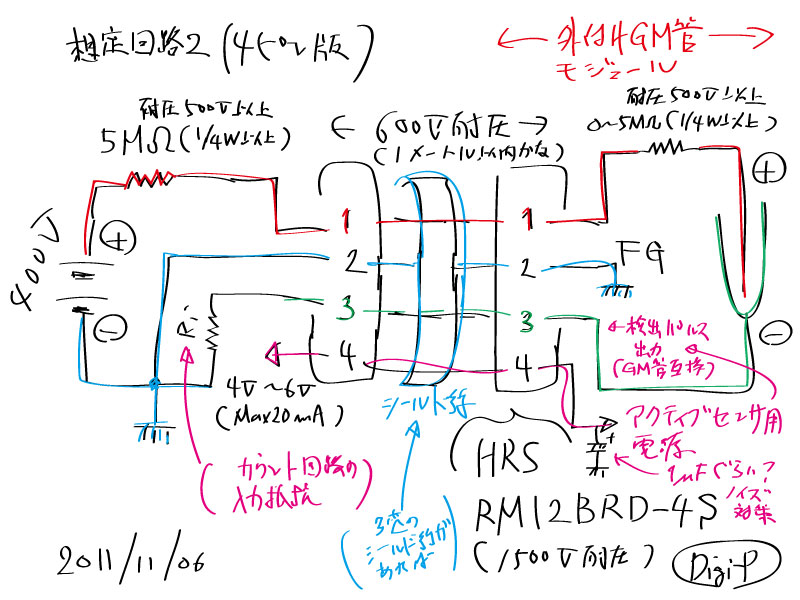 想定回路2 (450V版)
← 外付けGM管 →
モジュール
耐圧500V以上
5MΩ(1/4W以上)
← 600V耐圧 →
(1メートル以内かな)
耐圧500V以上
0~5MΩ(1/4W以上)
400V
+
-
1
2
3
4
1
2
3
4
FG
+
-
Ri
4V~6V
(Max20mA)
シールド線
←検出パルス
出力
(GM管互換)
アクティブセンサ用
電源
+
1μFぐらい?
ノイズ
対策
(カウント回路の
入力抵抗)
(3芯の
シールド線が
あれば)
(HRS
RM12BRD-4S
(1500V耐圧)
2011/11/06
DigiP